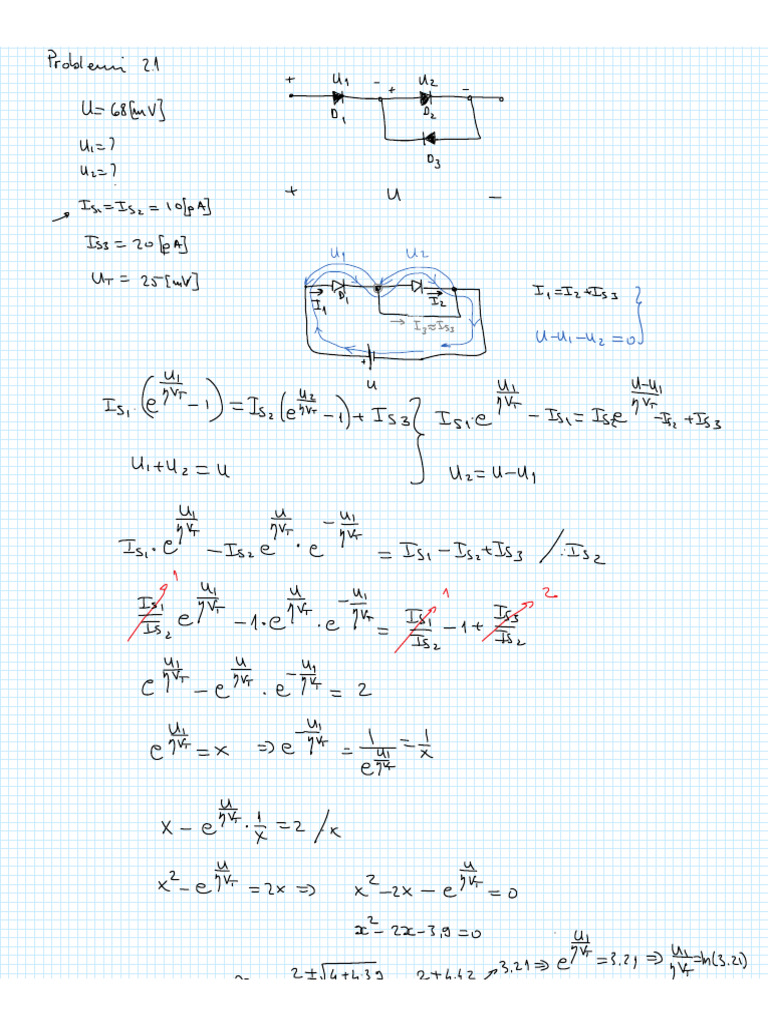 Problemi 2.1
+ U1 - + U2 -
D1 D2
D3
U=68[mV]
U1=?
U2=?
+ U -
IS1=IS2=10[pA]
IS3=20[pA]
UT=25[mV]
U1 U2
I1 D1 I2
I3≈IS3
+ U
I1=I2+IS3
U-U1-U2=0
IS1·(e^(U1/ηVT)-1)=IS2(e^(U2/ηVT)-1)+IS3 } IS1·e^(U1/ηVT)-IS1=IS2e^((U-U1)/ηVT)-IS2+IS3
U1+U2=U } U2=U-U1
IS1·e^(U1/ηVT)-IS2e^(U/ηVT)·e^(-U1/ηVT)=IS1-IS2+IS3 /:IS2
1 1 2
IS1/IS2 e^(U1/ηVT)-1·e^(U/ηVT)·e^(-U1/ηVT)=IS1/IS2-1+IS3/IS2
e^(U1/ηVT)-e^(U/ηVT)·e^(-U1/ηVT)=2
e^(U1/ηVT)=x ⇒ e^(-U1/ηVT)=1/e^(U1/ηVT)=1/x
x-e^(U/ηVT)·1/x=2 /x
x²-e^(U/ηVT)=2x ⇒ x²-2x-e^(U/ηVT)=0
x²-2x-3,9=0
2±√4+4·3,9 2+4.42 3.21 ⇒ e^(U1/ηVT)=3.21 ⇒ U1/ηVT=ln(3.21)